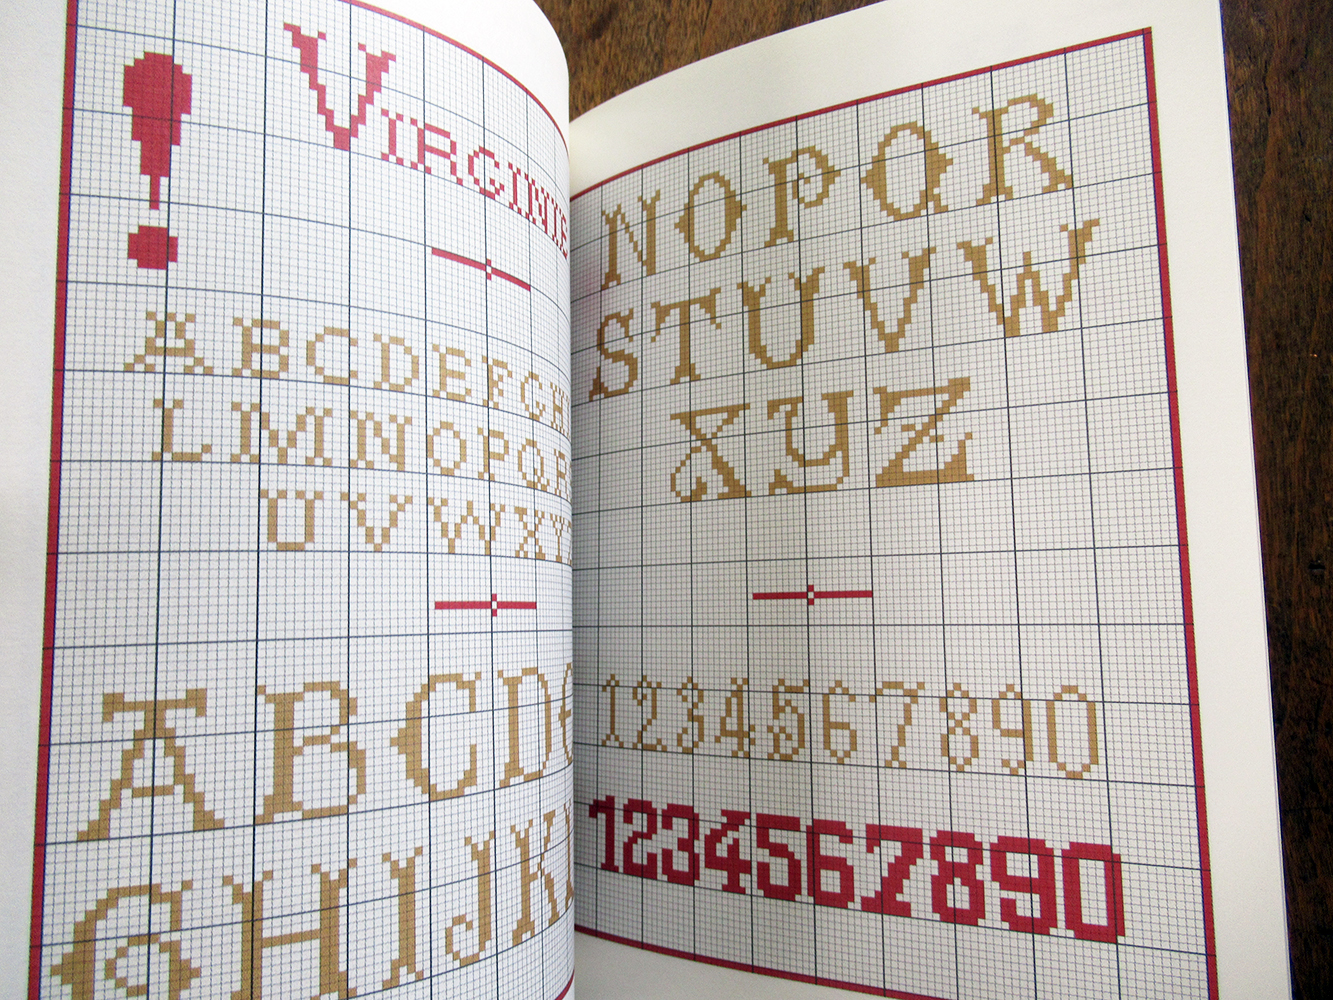 !
VIRGINIE
ABCDEFGH
LMNOPQR
UVWXY
ABCD
GHIJK
NOPQR
STUVW
XYZ
1234567890
1234567890